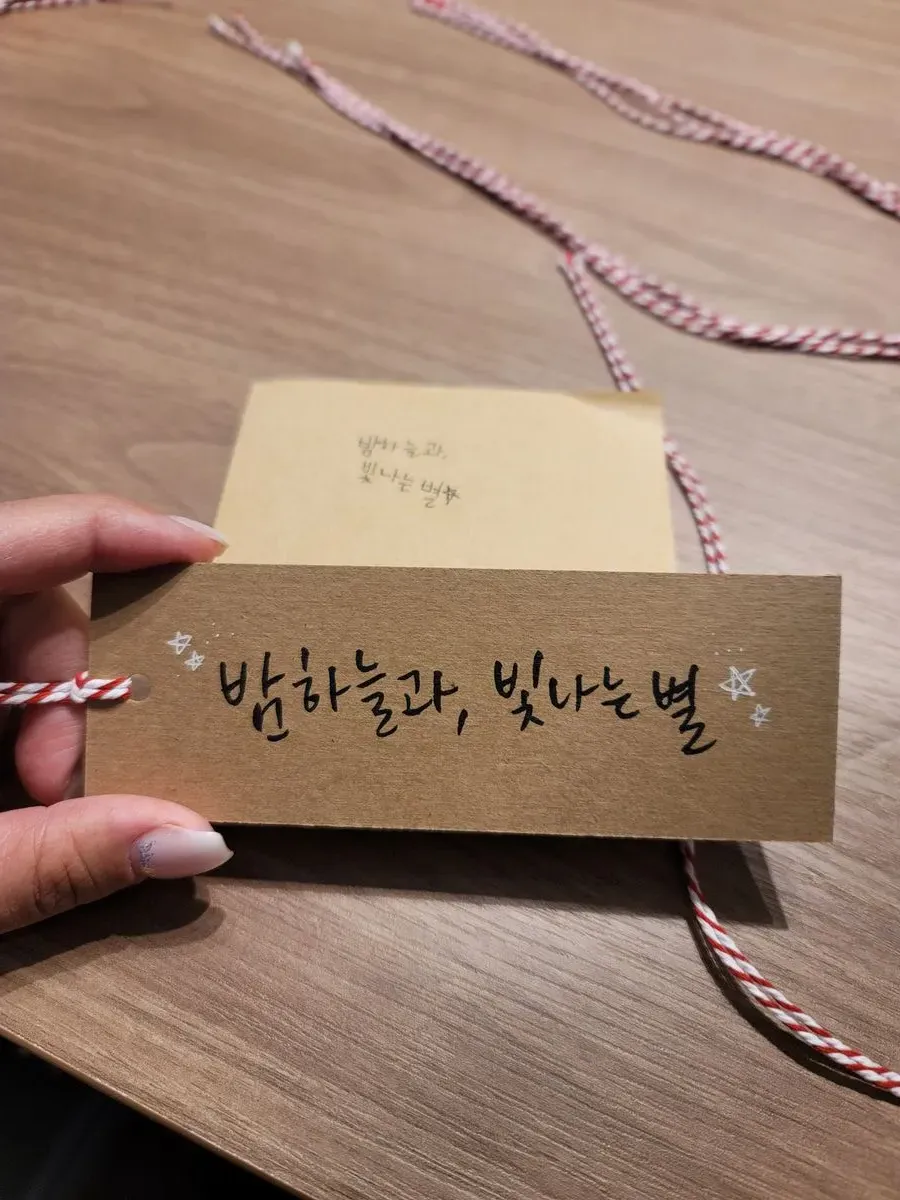 밤하늘과,
빛나는 별☆
밤하늘과, 빛나는 별